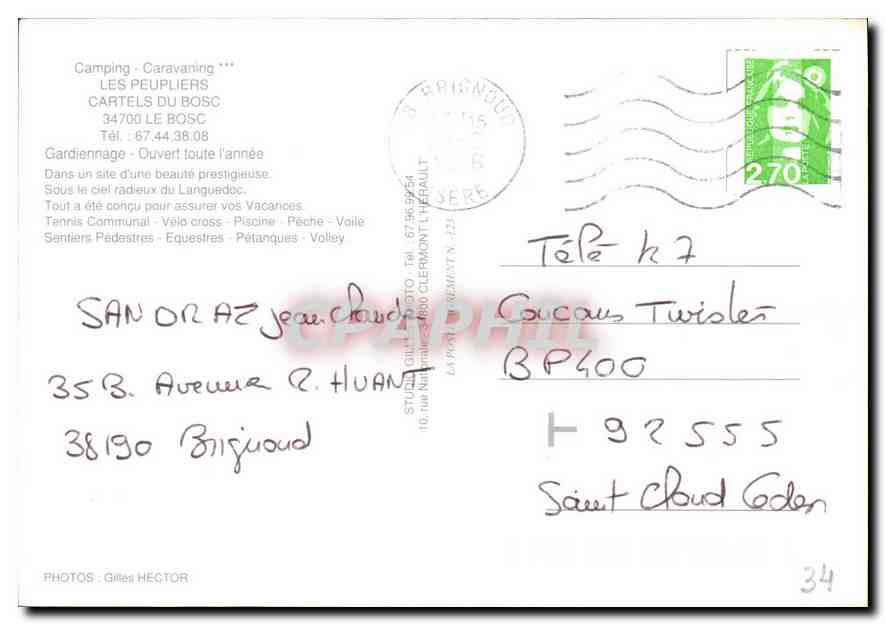 Camping - Caravaning ***
LES PEUPLIERS
CARTELS DU BOSC
34700 LE BOSC
Tél. : 67.44.38.08
Gardiennage - Ouvert toute l'année
Dans un site d'une beauté prestigieuse.
Sous le ciel radieux du Languedoc.
Tout a été conçu pour assurer vos Vacances.
Tennis Communal - Vélo cross - Piscine - Pêche - Voile
Sentiers Pédestres - Equestres - Pétanques - Volley.
SANDRAZ Jean Claude
35 B. Avenue R. HUANT
38190 Brignoud
PHOTOS : Gilles HECTOR
BRIGNOUD
ISERE
STUDIO GIL PHOTO - Tél. : 67.96.99.54
10, rue Nationale - 34800 CLERMONT L'HERAULT
CPAPHIL
REPUBLIQUE FRANÇAISE
2,70
LA POSTE
Télé K7
Coucous Twister
BP400
92555
Saint Cloud Cedex
34